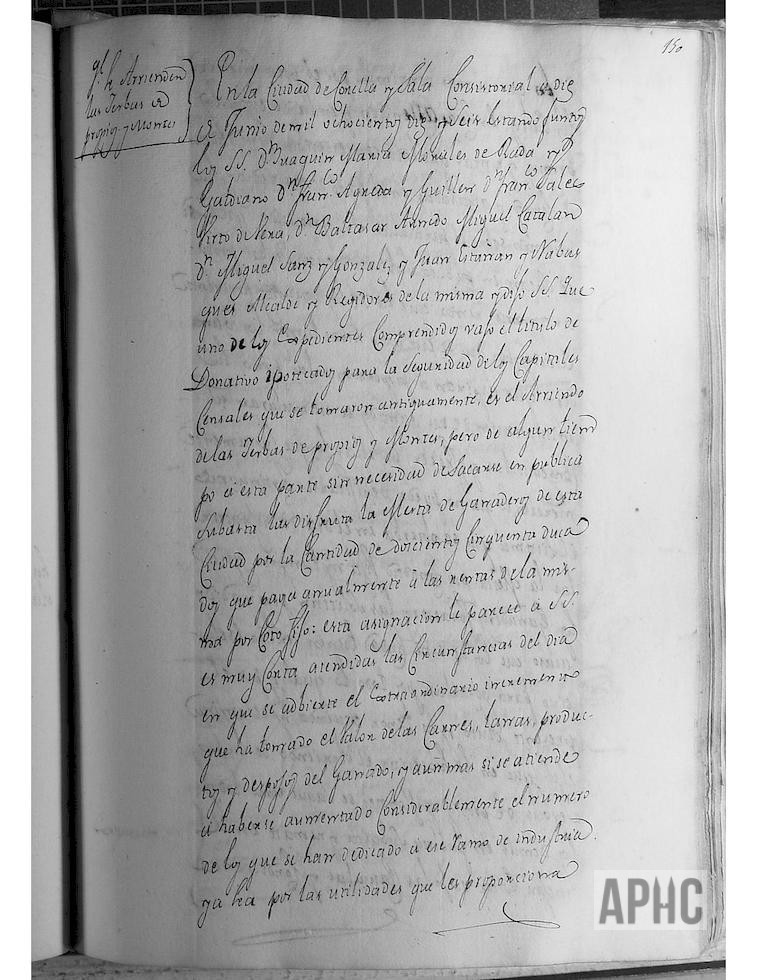 150
qe. se Arrienden
las Yerbas de
propios y Montes
En la Ciudad de Corella y Sala Consistorial a diez
de Junio de mil ochocientos diez y seis estando juntos
los SS. Dn. Juaquin Maria Morales de Rada y
Galdiano Dn. Franco. Agreda y Guillen Dn. Franco. Sales
Virto de Vera, Dn. Baltasar Arnedo Miguel Catalan
Dn. Miguel Sanz y Gonzalez y Juan Estañan y Nabas
gues Alcalde y Regidores de la misma y dijo SS. Que
uno de los Expedientes Comprendidos vajo el titulo de
Donativo ipotecados para la Seguridad de los Capitales
Censales que se tomaron antiguamente, es el Arriendo
de las Yerbas de propios y Montes, pero de algun tiem
po a esta parte sin necesidad de Sacarse en publica
Subasta las disfruta la Mesta de Ganaderos de esta
Ciudad por la Cantidad de doscientos Cinquenta duca
dos que paga anualmente a las rentas de la mis-
ma por Coto fijo: esta asignacion le parece a SS.
es muy Corta atendidas las Circunstancias del dia
en que se adbierte el Extraordinario incremento
que ha tomado el Valor de las Carnes, Lanas, produc-
tos y despojos del Ganado, y aun mas si se atiende
a haberse aumentado Considerablemente el numero
de los que se han dedicado a ese Ramo de industria
ya sea por las utilidades que les proporciona
APHC